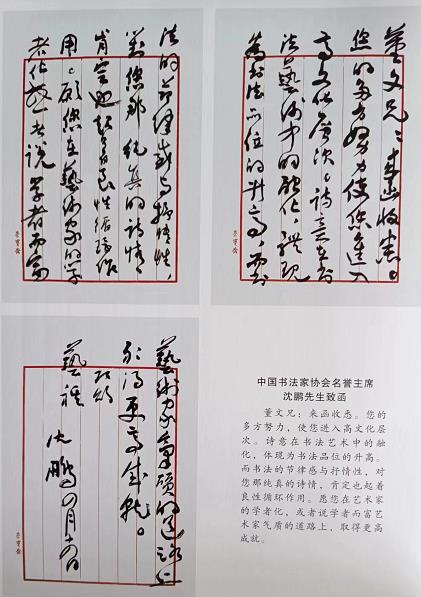 董文兄：来函收悉。
您的多方努力使您進入
高文化層次。詩意在書
法藝術中的融化，體現
為書法品位的升高，而書
榮寶齋
法的節律感与抒情性，
對您那純真的詩情，
肯定也起着良性循環作
用。願您在藝術家的學
者化，或者说學者而富
榮寶齋
藝術家氣質的道路上
取得更高成就。
即頌
藝祺
沈鵬 四月十九日
榮寶齋
中国书法家协会名誉主席
沈鹏先生致函
董文兄：来函收悉。您的
多方努力，使您进入高文化层
次。诗意在书法艺术中的融
化，体现为书法品位的升高。
而书法的节律感与抒情性，对
您那纯真的诗情，肯定也起着
良性循环作用。愿您在艺术家
的学者化，或者说学者而富艺
术家气质的道路上，取得更高
成就。